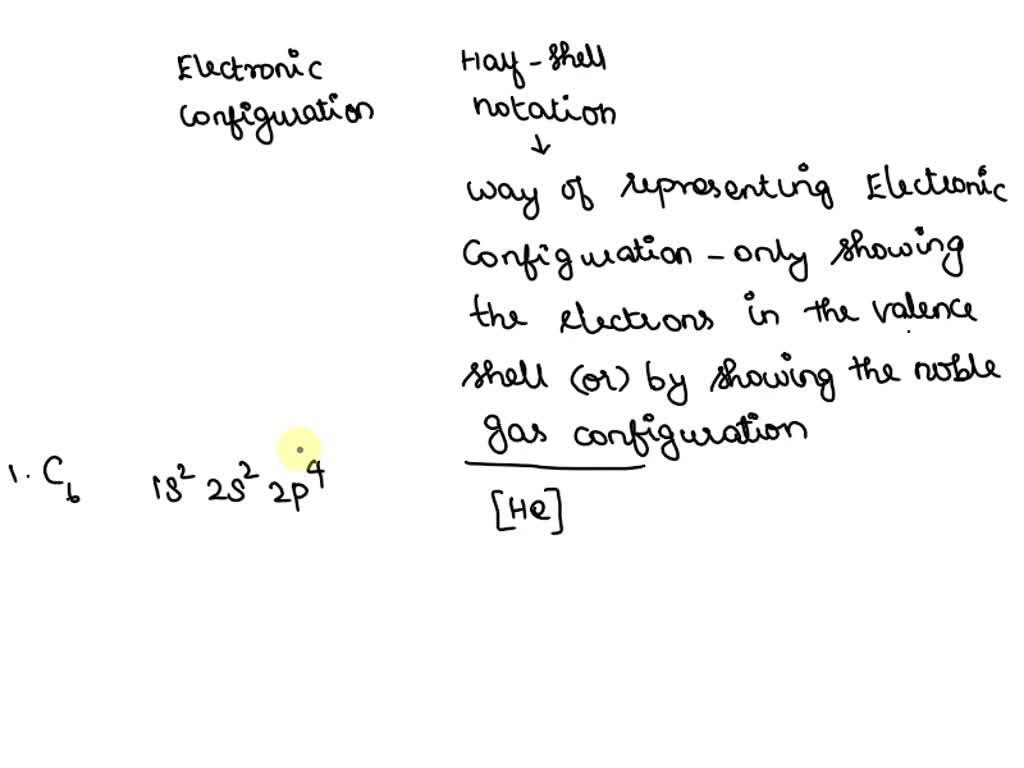 Electronic
Configuration
Half-shell
notation
↓
way of representing Electronic
Configuration - only showing
the electrons in the valence
shell (or) by showing the noble
gas configuration
1. C₆ 1s² 2s² 2p⁴
[He]